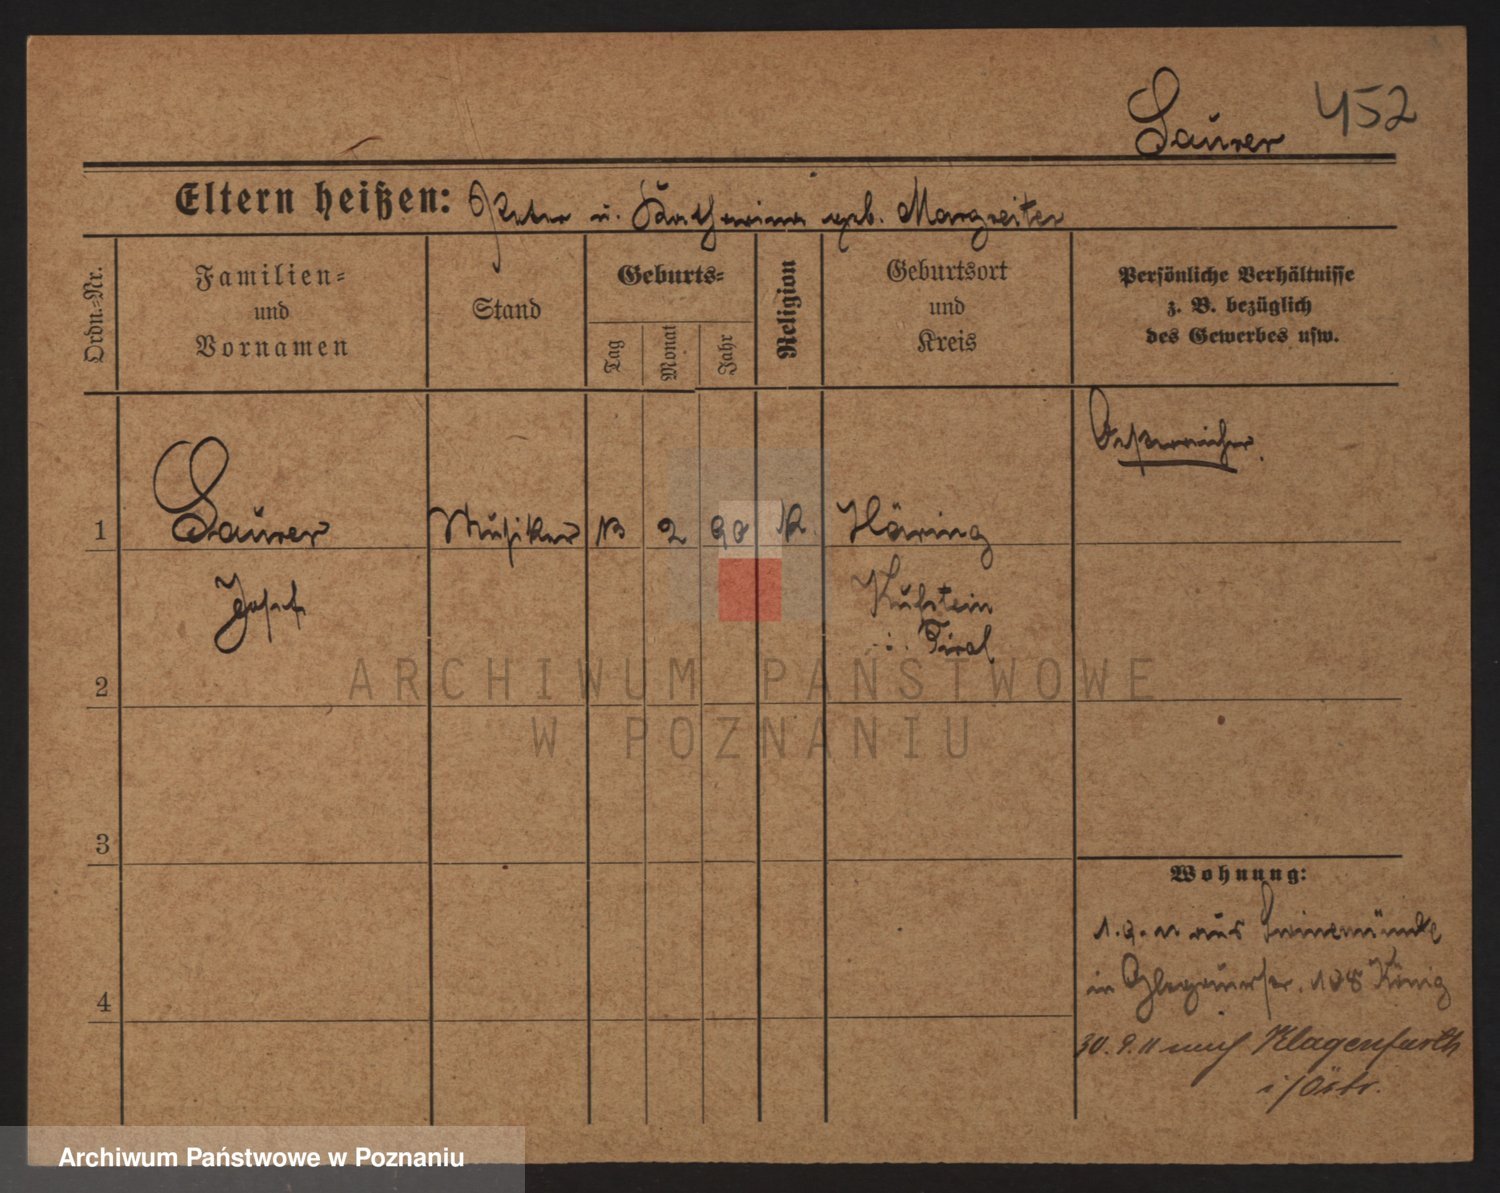 Saurer 452
Eltern heißen: Peter u. Katharina geb. Margreiter
Ordn.-Nr.
Familien-
und
Vornamen
Stand
Geburts-
Tag
Monat
Jahr
Religion
Geburtsort
und
Kreis
Persönliche Verhältnisse
z. B. bezüglich
des Gewerbes usw.
Oesterreicher.
1 Saurer Musiker 13 2 90 K. Häring
Josef Kufstein
i. Tirol
2
3
4
Wohnung:
1.9.11 aus Swinemünde
in 138 König
30.9.11 nach Klagenfurth
i/Östr.
ARCHIWUM PAŃSTWOWE
W POZNANIU
Archiwum Państwowe w Poznaniu